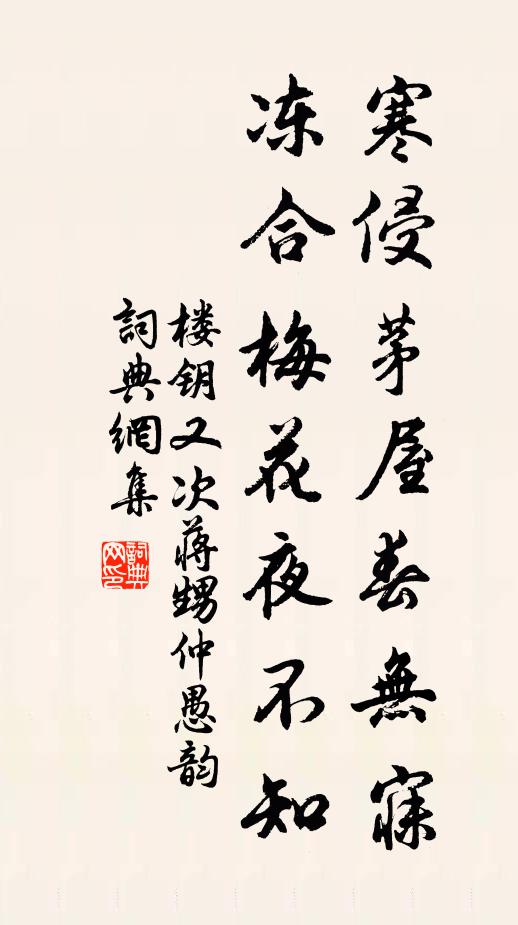 寒侵茅屋春無寐
冻合梅花夜不知
楼钥又次蒋甥仲愚韵
詞典網集
詞典网印